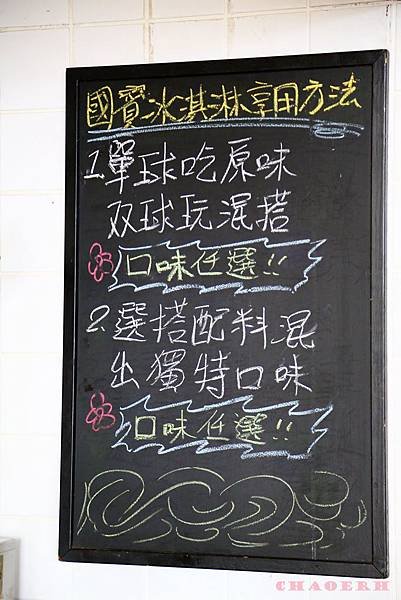 國賓冰淇淋享用方法
1.單球吃原味
双球玩混搭
口味任選!!
2.選搭配料混
出獨特口味
口味任選!!
CHAOERH